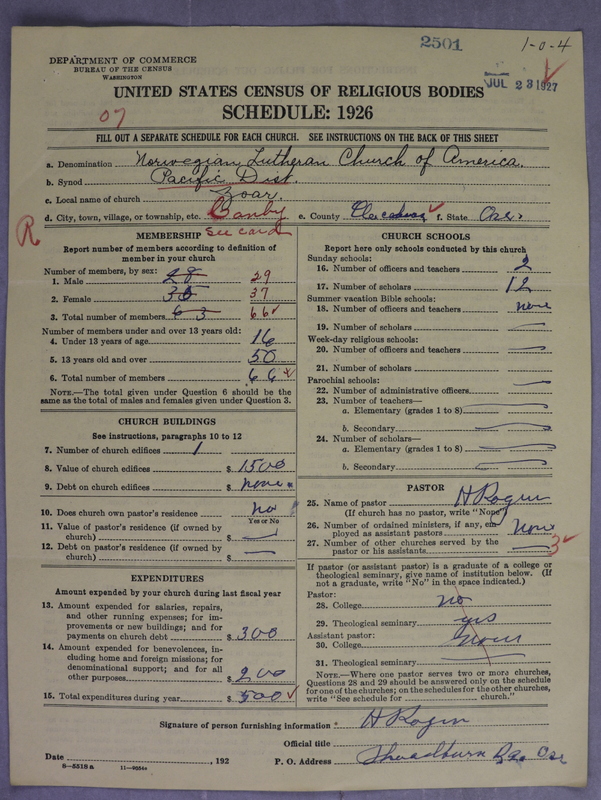 2501
1-0-4
DEPARTMENT OF COMMERCE
BUREAU OF THE CENSUS
WASHINGTON
JUL 23 1927
UNITED STATES CENSUS OF RELIGIOUS BODIES
SCHEDULE: 1926
07
FILL OUT A SEPARATE SCHEDULE FOR EACH CHURCH. SEE INSTRUCTIONS ON THE BACK OF THIS SHEET
a. Denomination Norwegian Lutheran Church of America.
b. Synod Pacific Dist.
c. Local name of church Zoar.
d. City, town, village, or township, etc. Canby e. County Clackamas f. State Ore.
R
See card
MEMBERSHIP
Report number of members according to definition of member in your church
Number of members, by sex:
1. Male 28 29
2. Female 35 37
3. Total number of members 63 66
Number of members under and over 13 years old:
4. Under 13 years of age 16
5. 13 years old and over 50
6. Total number of members 66
NOTE.—The total given under Question 6 should be the
same as the total of males and females given under Question 3.
CHURCH BUILDINGS
See instructions, paragraphs 10 to 12
7. Number of church edifices 1
8. Value of church edifices $ 1500
9. Debt on church edifices $ none
10. Does church own pastor's residence no
Yes or No
11. Value of pastor's residence (if owned by
church) $ —
12. Debt on pastor's residence (if owned by
church) $ —
EXPENDITURES
Amount expended by your church during last fiscal year
13. Amount expended for salaries, repairs,
and other running expenses; for im-
provements or new buildings; and for
payments on church debt $ 300
14. Amount expended for benevolences, in-
cluding home and foreign missions; for
denominational support; and for all
other purposes $ 200
15. Total expenditures during year $ 500
CHURCH SCHOOLS
Report here only schools conducted by this church
Sunday schools:
16. Number of officers and teachers 2
17. Number of scholars 12
Summer vacation Bible schools:
18. Number of officers and teachers none
19. Number of scholars —
Week-day religious schools:
20. Number of officers and teachers —
21. Number of scholars
Parochial schools:
22. Number of administrative officers —
23. Number of teachers—
a. Elementary (grades 1 to 8) —
b. Secondary —
24. Number of scholars—
a. Elementary (grades 1 to 8) —
b. Secondary —
PASTOR
25. Name of pastor H Rogen
(If church has no pastor, write "None")
26. Number of ordained ministers, if any, em-
ployed as assistant pastors None
27. Number of other churches served by the
pastor or his assistants — 3
If pastor (or assistant pastor) is a graduate of a college or
theological seminary, give name of institution below. (If
not a graduate, write "No" in the space indicated.)
Pastor:
28. College no
29. Theological seminary yes
Assistant pastor:
30. College None
31. Theological seminary —
NOTE.—Where one pastor serves two or more churches,
Questions 28 and 29 should be answered only on the schedule
for one of the churches; on the schedules for the other churches,
write "See schedule for ______ church."
Signature of person furnishing information H Rogen
Official title
Date , 192 P. O. Address Ore
8-5518a 11-9554